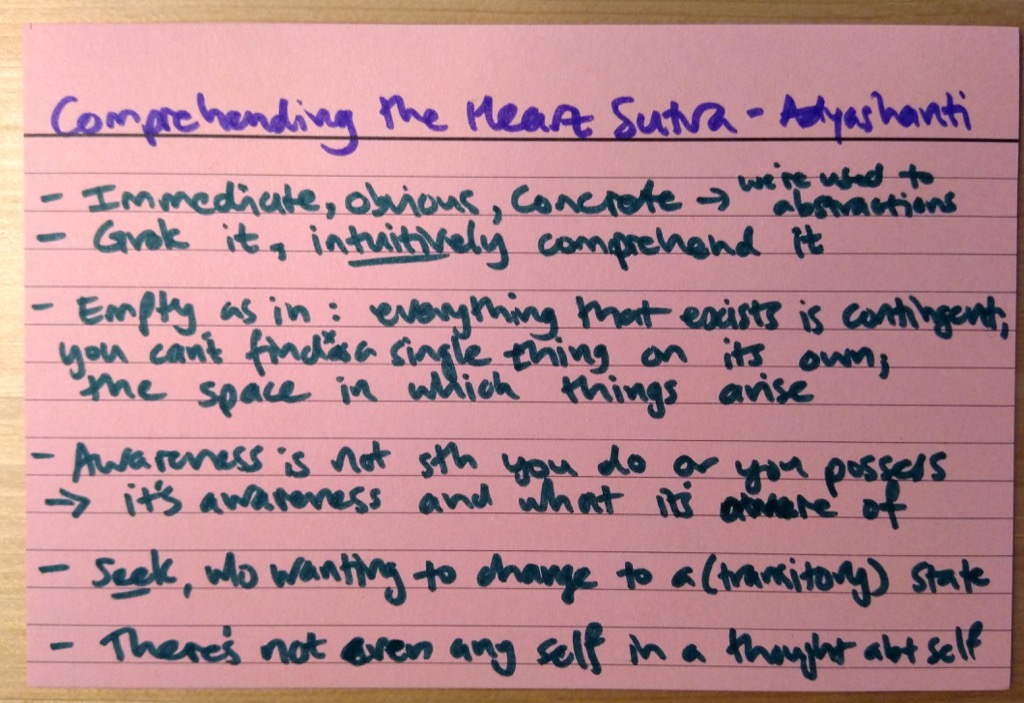 Comprehending the Heart Sutra - Adyashanti
- Immediate, obvious, concrete → we're used to abstractions
- Grok it, intuitively comprehend it
- Empty as in: everything that exists is contingent,
you can't find a single thing on its own;
the space in which things arise
- Awareness is not sth you do or you possess
→ it's awareness and what it's aware of
- Seek, w/o wanting to change to a (transitory) state
- There's not even any self in a thought abt self